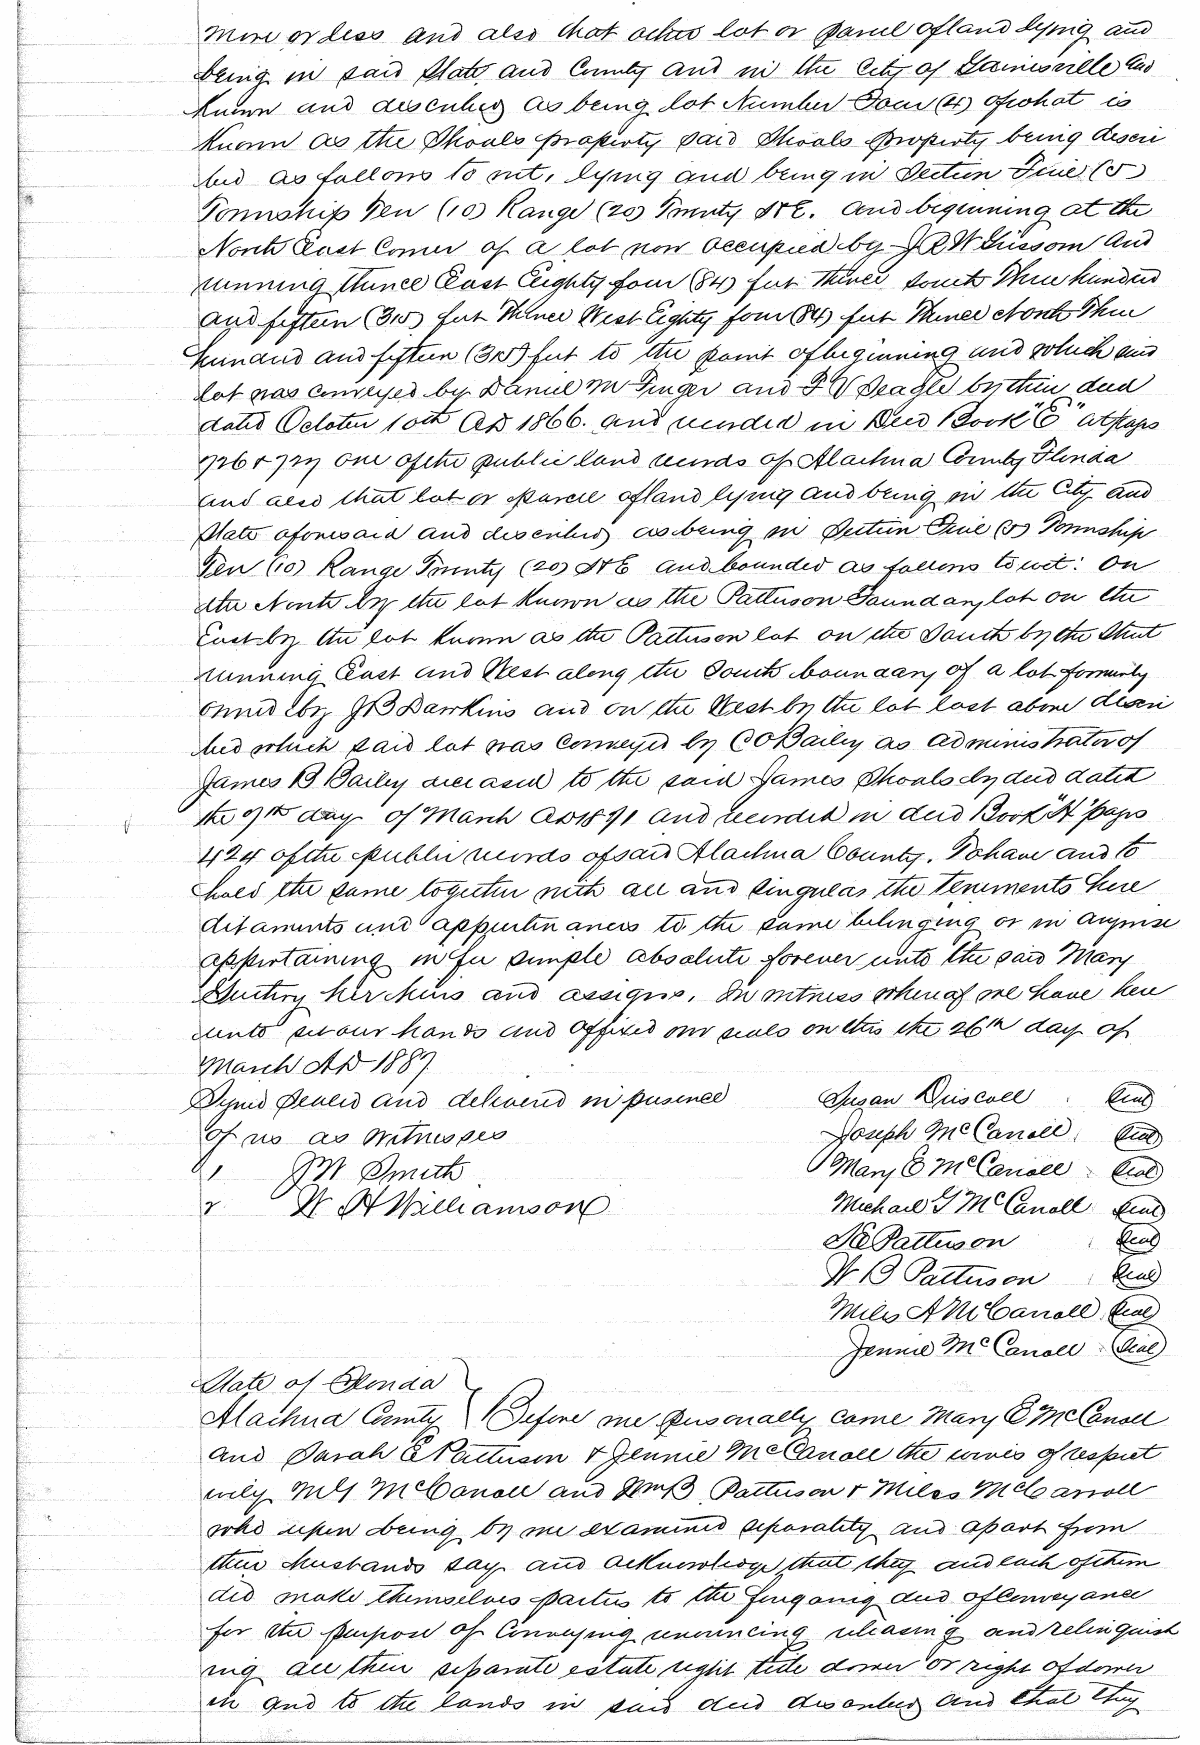 more or less and also that other lot or parcel of land lying and
being in said State and County and in the City of Gainesville and
known and described as being lot Number Four (4) of what is
known as the Shoals property said Shoals property being descri
bed as follows to wit, lying and being in Section Five (5)
Township Ten (10) Range (20) Twenty S & E. and beginning at the
North East Corner of a lot now occupied by Grissom and
running thence East Eighty four (84) feet thence South Three hundred
and fifteen (315) feet Thence West Eighty four (84) feet Thence North Three
hundred and fifteen (315) feet to the point of beginning and which said
lot was conveyed by Daniel M and Seagle by their deed
dated October 10th AD 1866. and recorded in Deed Book "E" at pages
726 & 727 one of the public land records of Alachua County Florida
and also that lot or parcel of land lying and being in the City and
State aforesaid and described as being in Section Five (5) Township
Ten (10) Range Twenty (20) S & E and bounded as follows to wit: On
the North by the lot known as the Patterson Foundary lot on the
East by the lot known as the Patterson lot on the South by the Street
running East and West along the South boundary of a lot formerly
owned by J B Dawkins and on the West by the lot last above descri
bed which said lot was conveyed by C O Bailey as administrator of
James B Bailey deceased to the said James Shoals by deed dated
the 7th day of March AD and recorded in deed Book "H" pages
424 of the public records of said Alachua County. To have and to
hold the same together with all and singular the tenements here
ditaments and appurtenances to the same belonging or in anywise
appertaining in fee simple absolute forever unto the said Mary
her heirs and assigns. In witness whereof we have here
unto set our hands and affixed our seals on this the 26th day of
March AD 1887
Signed Sealed and delivered in presence
of us as witnesses
1 J W Smith
2 W H Williamson
Susan Driscoll Seal
Joseph McCarroll Seal
Mary E McCarroll Seal
Michael G McCarroll Seal
S E Patterson Seal
W B Patterson Seal
Miles A McCarroll Seal
Jennie McCarroll Seal
State of Florida
Alachua County } Before me personally came Mary E McCarroll
and Sarah E Patterson & Jennie McCarroll the wives of respect
ively M G McCarroll and Wm B Patterson & Miles McCarroll
who upon being by me examined separately and apart from
their husbands say and acknowledge that they and each of them
did make themselves parties to the foregoing deed of Conveyance
for the purpose of Conveying renouncing releasing and relinquish
ing all their separate estate right title dower or right of dower
in and to the lands in said deed described and that they